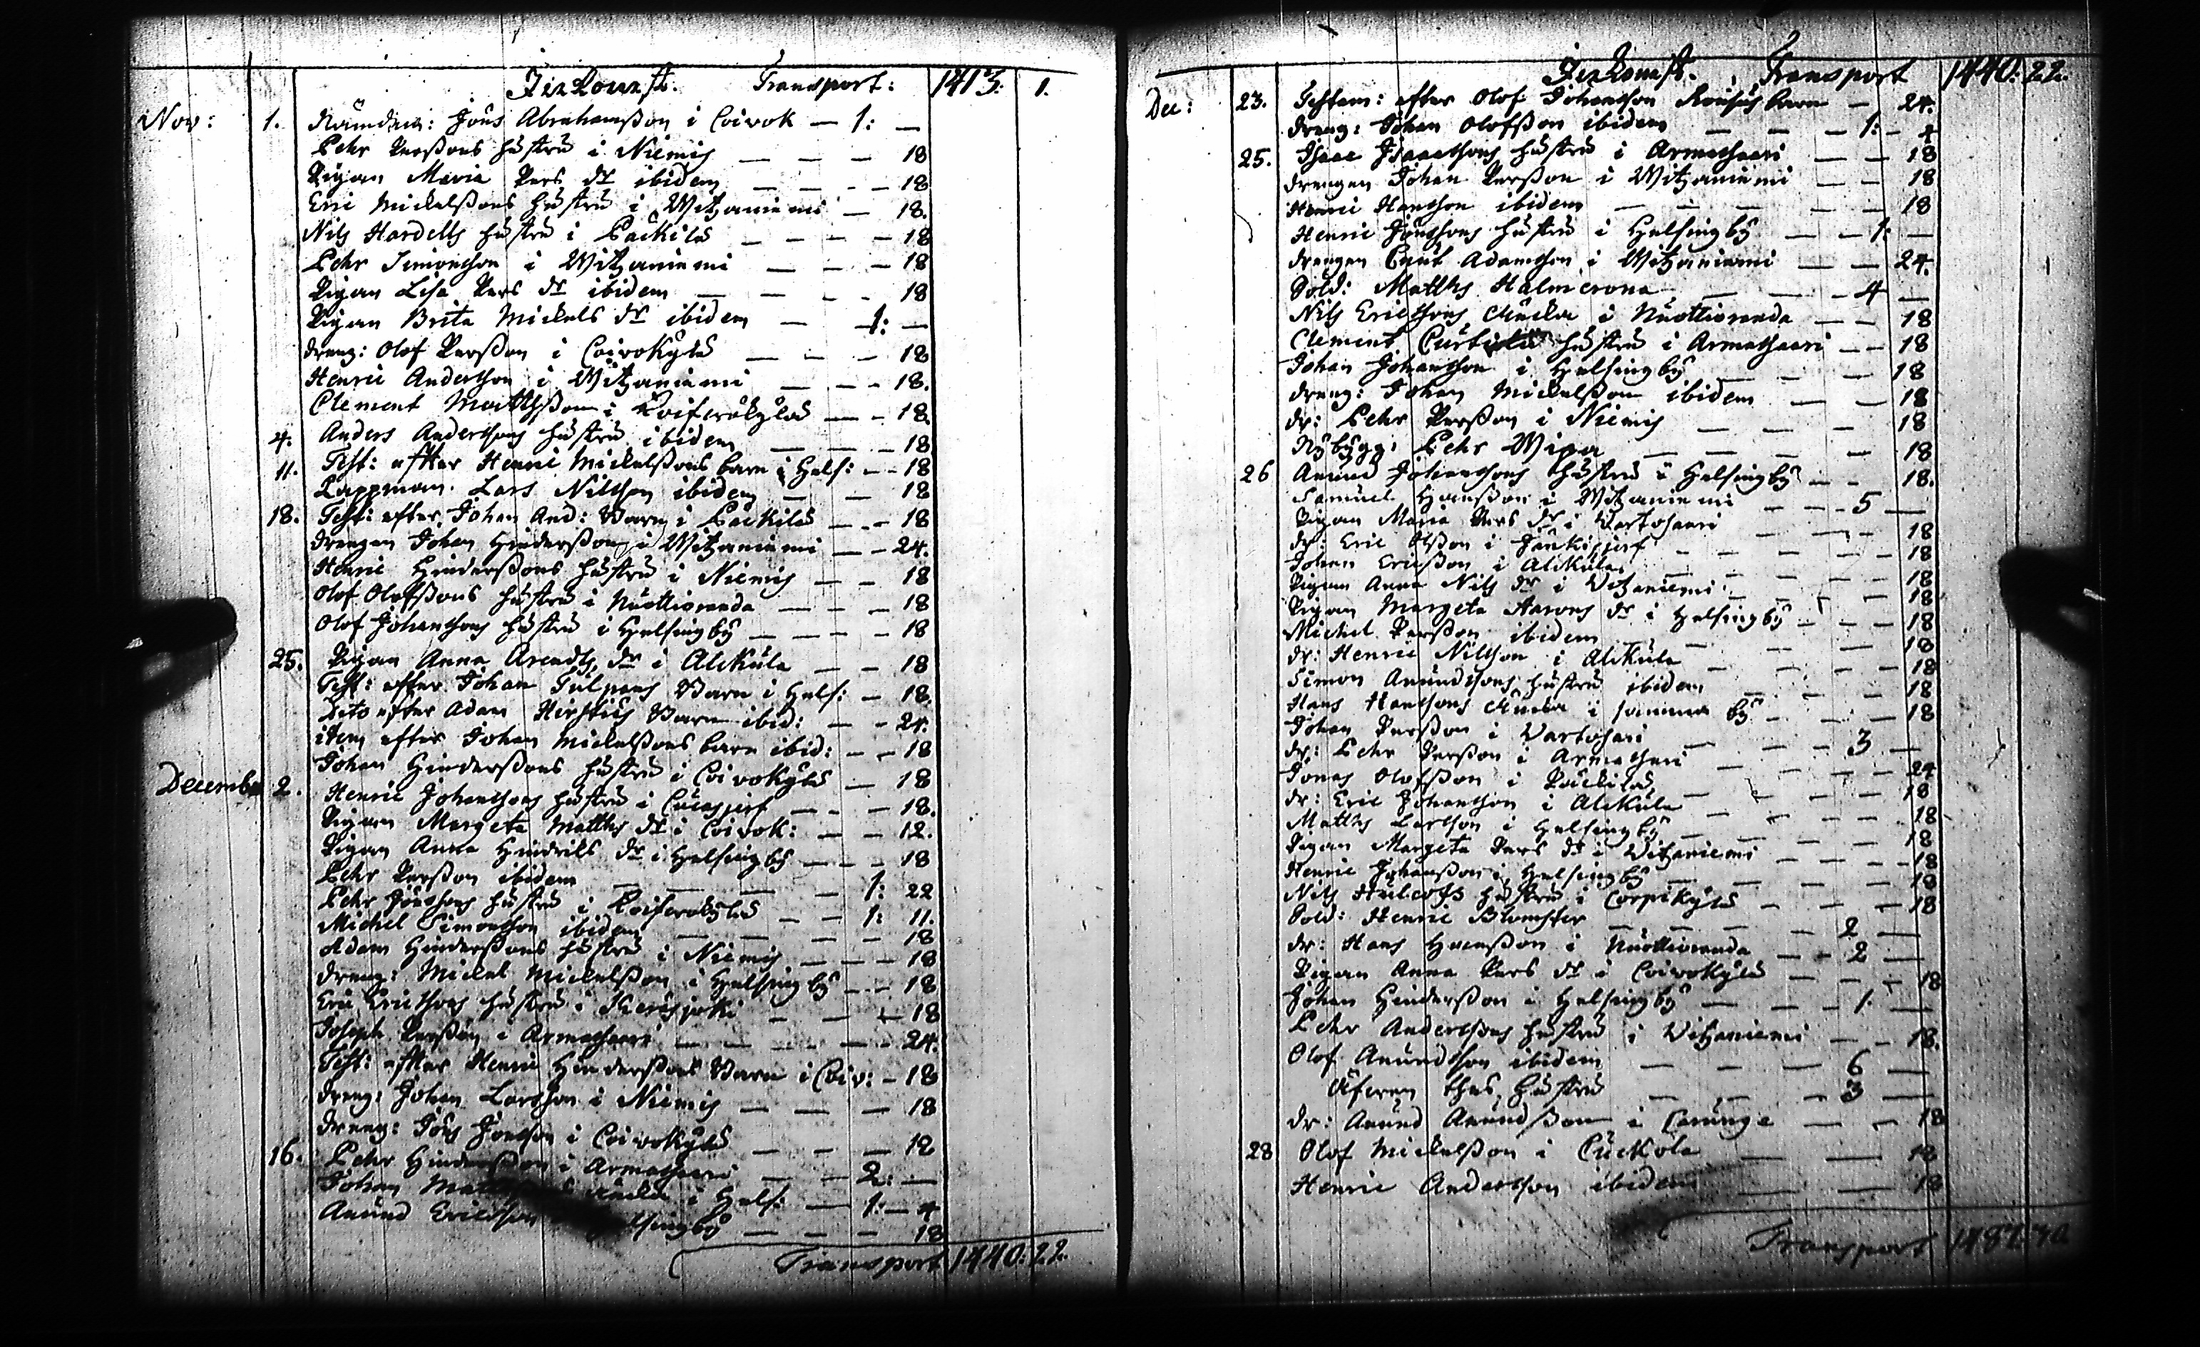 Inkomst. Transport: 1413. 1.
Nov: 1. Nämdem: Jöns Abrahamsson i Coivok — 1: —
Pehr Perssons hustru i Niemis — — — 18
Pigan Maria Pers dr ibidem — — — 18
Eric Mickelssons hustru i Witzaniemi — 18.
Nils Hardells hustru i Päckilä — — — 18
Pehr Simonsson i Witzaniemi — — — 18
Pigan Lisa Pers dr ibidem — — — 18
Pigan Brita Mickels dr ibidem — 1: —
dreng: Olof Persson i Coivokylä — — — 18
Henric Andersson i Witzaniemi — — — 18.
Clement Matthsson i Koiferäkylä — — 18.
4. Anders Anderssons hustru ibidem — — — 18
11. Test: efter Henric Mickelssons barn i Hels: — 18
Lappman Lars Nilsson ibidem — — 18
18. Test: efter Johan And: Barn i Päckilä — — 18
drengen Johan Hindersson i Witzaniemi — — 24.
Henric Hinderssons hustru i Niemis — — 18
Olof Olofssons hustru i Nuottioranda — — — 18
Olof Johanssons hustru i Helsingby — — — — 18
25. Pigan Anna Arendts dr i Alkula — — 18
Test: efter Johan Tulpans Barn i Hels: — 18.
Dito efter Adam Barn ibid: — — 24.
idem efter Johan Mickelssons barn ibid: — — 18
Johan Hinderssons hustru i Coivokylä — 18
December 2. Henric Johanssons hustru i — — 18.
Pigan Margeta Matths dr i Coivok: — — 12.
Pigan Anna Hindrils dr i Helsingby — — — 18
Pehr Persson ibidem — — — 1: 22
Pehr Jönssons hustru i — — 1: 11.
Michel Simonsson ibidem — — — — 18
Adam Hinderssons hustru i Niemis — — — 18
dreng: Mickel Mickelsson i Helsingby — — 18
Eric Ericssons hustru i Karusjoki — — — 18
Joseph Persson i Armassaari — — — 24.
Test: efter Henric Hinderssons Barn i Coiv: — 18
dreng: Johan Larsson i Niemis — — — 18
dreng: Jöns Jönsson i Coivokylä — — — 12
16. Pehr Hindersson i Armassaari — — 2: —
Johan i Hels: — 1: — 4
Anund Ericsson Helsingby — — — — 18
Transport 1440: 22.
Inkomst. Transport 1440: 22.
Dec: 23. Testam: efter Olof Johansson barn — 24.
dreng: Johan Olofsson ibidem — — — 1: — 4
25. Isaac Isaacssons hustru i Armassaari — — 18
drengen Johan Persson i Witzaniemi — — 18
Henric Hansson ibidem — — — — 18
Henric Jönssons hustru i Helsingby — — 1: —
drengen Cnut Adamsson i Witzaniemi — — 24.
Sold: Matths Halmcrona — — — 4 —
Nils Ericssons änka i Nuottioranda — — 18
Clement hustru i Armassaari — — 18
Johan Johansson i Helsingby — — — 18
dreng: Johan Mickelsson ibidem — — — 18
dr: Pehr Persson i Niemis — — — 18
Nybygg: Pehr Wipa — — — — 18
26 Anund Johanssons hustru i Helsingby — — 18.
Samuel Hansson i Witzaniemi — — — 5 —
Pigan Maria Pers dr i Vartosaari — — — 18
dr: Eric Olsson i — — — 18
Johan Ericsson i Alkula — — — — 18
Pigan Anna Nils dr i Vitzaniemi — — — 18
Pigan Margeta Aarons dr i Helsingby — — — 18
Michel Persson ibidem — — — — 18
dr: Henric Nilsson i Alkula — — — 18
Simon Anundssons hustru ibidem — — — 18
Hans Hanssons änka i samma by — — — 18
Johan Persson i Vartosari — — — 3 —
dr: Pehr Persson i Armassari — — — 24
Jonas Olofsson i Päckilä — — — — 18
dr: Eric Johansson i Alkula — — — 18
Matths Larsson i Helsingby — — — 18
Pigan Margeta Pers dr i Vitzaniemi — — — 18
Henric Johansson i Helsingby — — — 18
Nils hustru i Corpikylä — — — 18
Sold: Henric Blomster — — — — 2 —
dr: Hans Hansson i Nuottioranda — — 2 —
Pigan Anna Pers dr i Coivokylä — — — 18
Johan Hindersson i Helsingby — — — 1. —
Pehr Anderssons hustru i Vitzaniemi — — 18.
Olof Anundsson ibidem — — — 6 —
Äfwen thes hustru — — — 3 —
dr: Anund Anundsson i Carunge — — — 18
28 Olof Mickelsson i Cuckola — — 18
Henric Andersson ibidem — — — 18
Transport 1487.